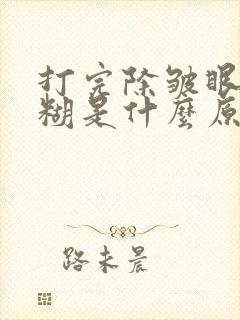 打完除皱眼
糊是什麼原
路未晨